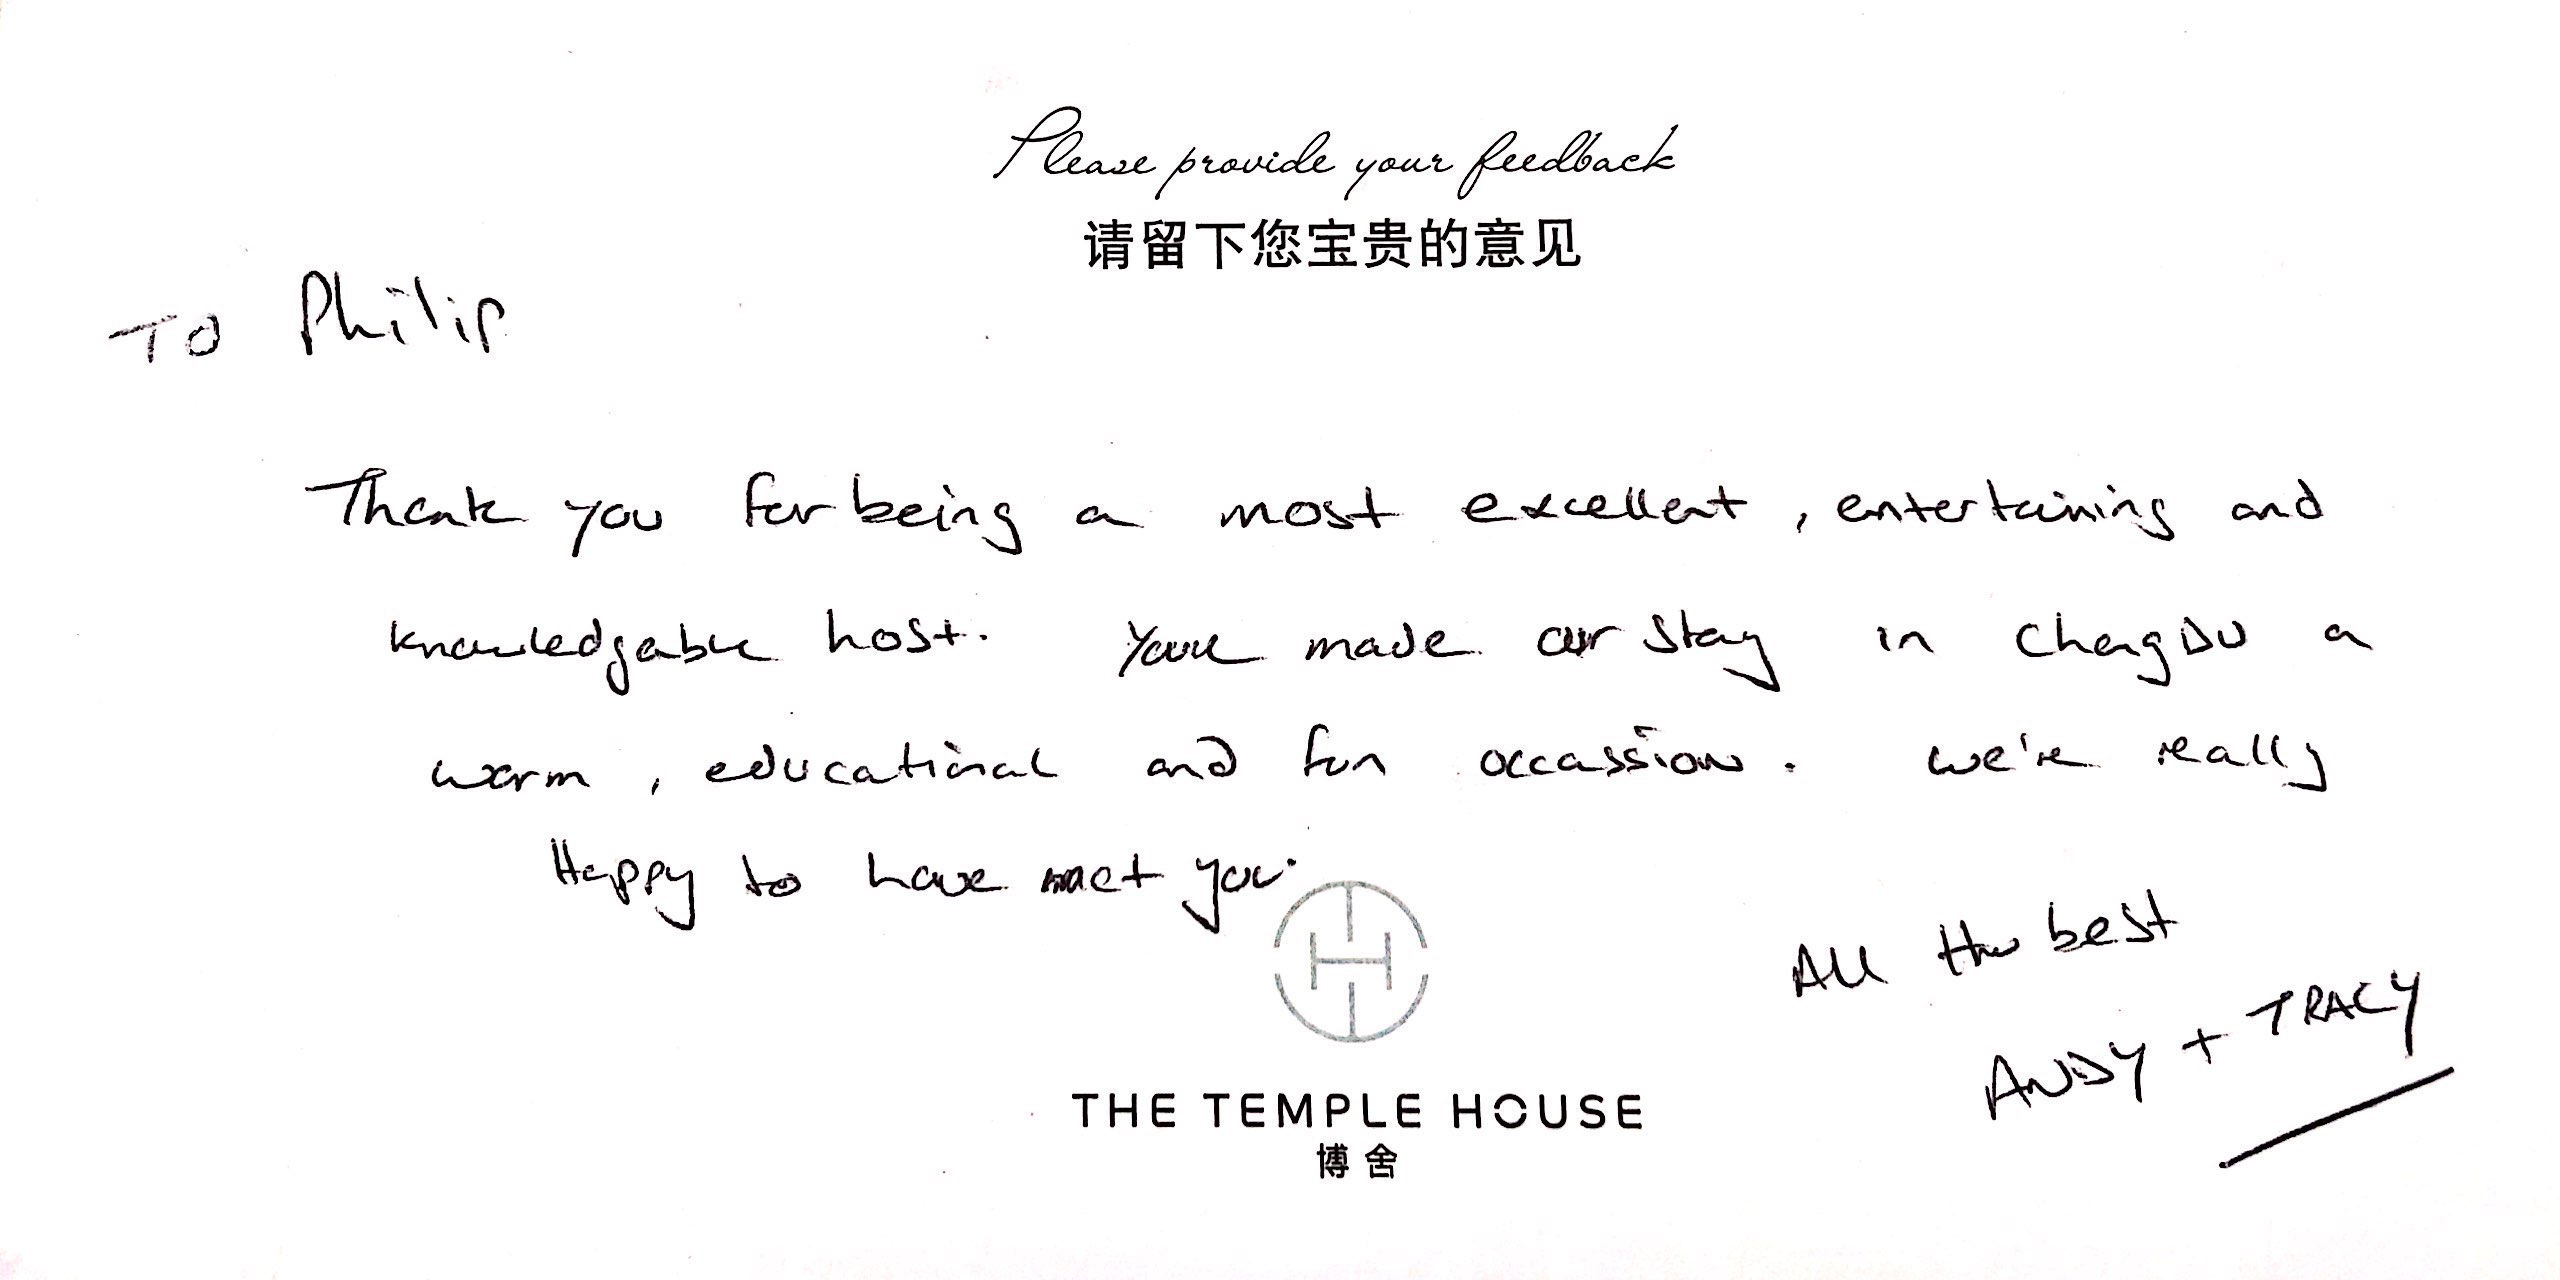 Please provide your feedback
请留下您宝贵的意见
To Philip
Thank you for being a most excellent, entertaining and
knowledgable host. You've made our stay in ChengDU a
warm, educational and fun occassion. We're really
Happy to have met you.
All the best
ANDY + TRACY
THE TEMPLE HOUSE
博舍